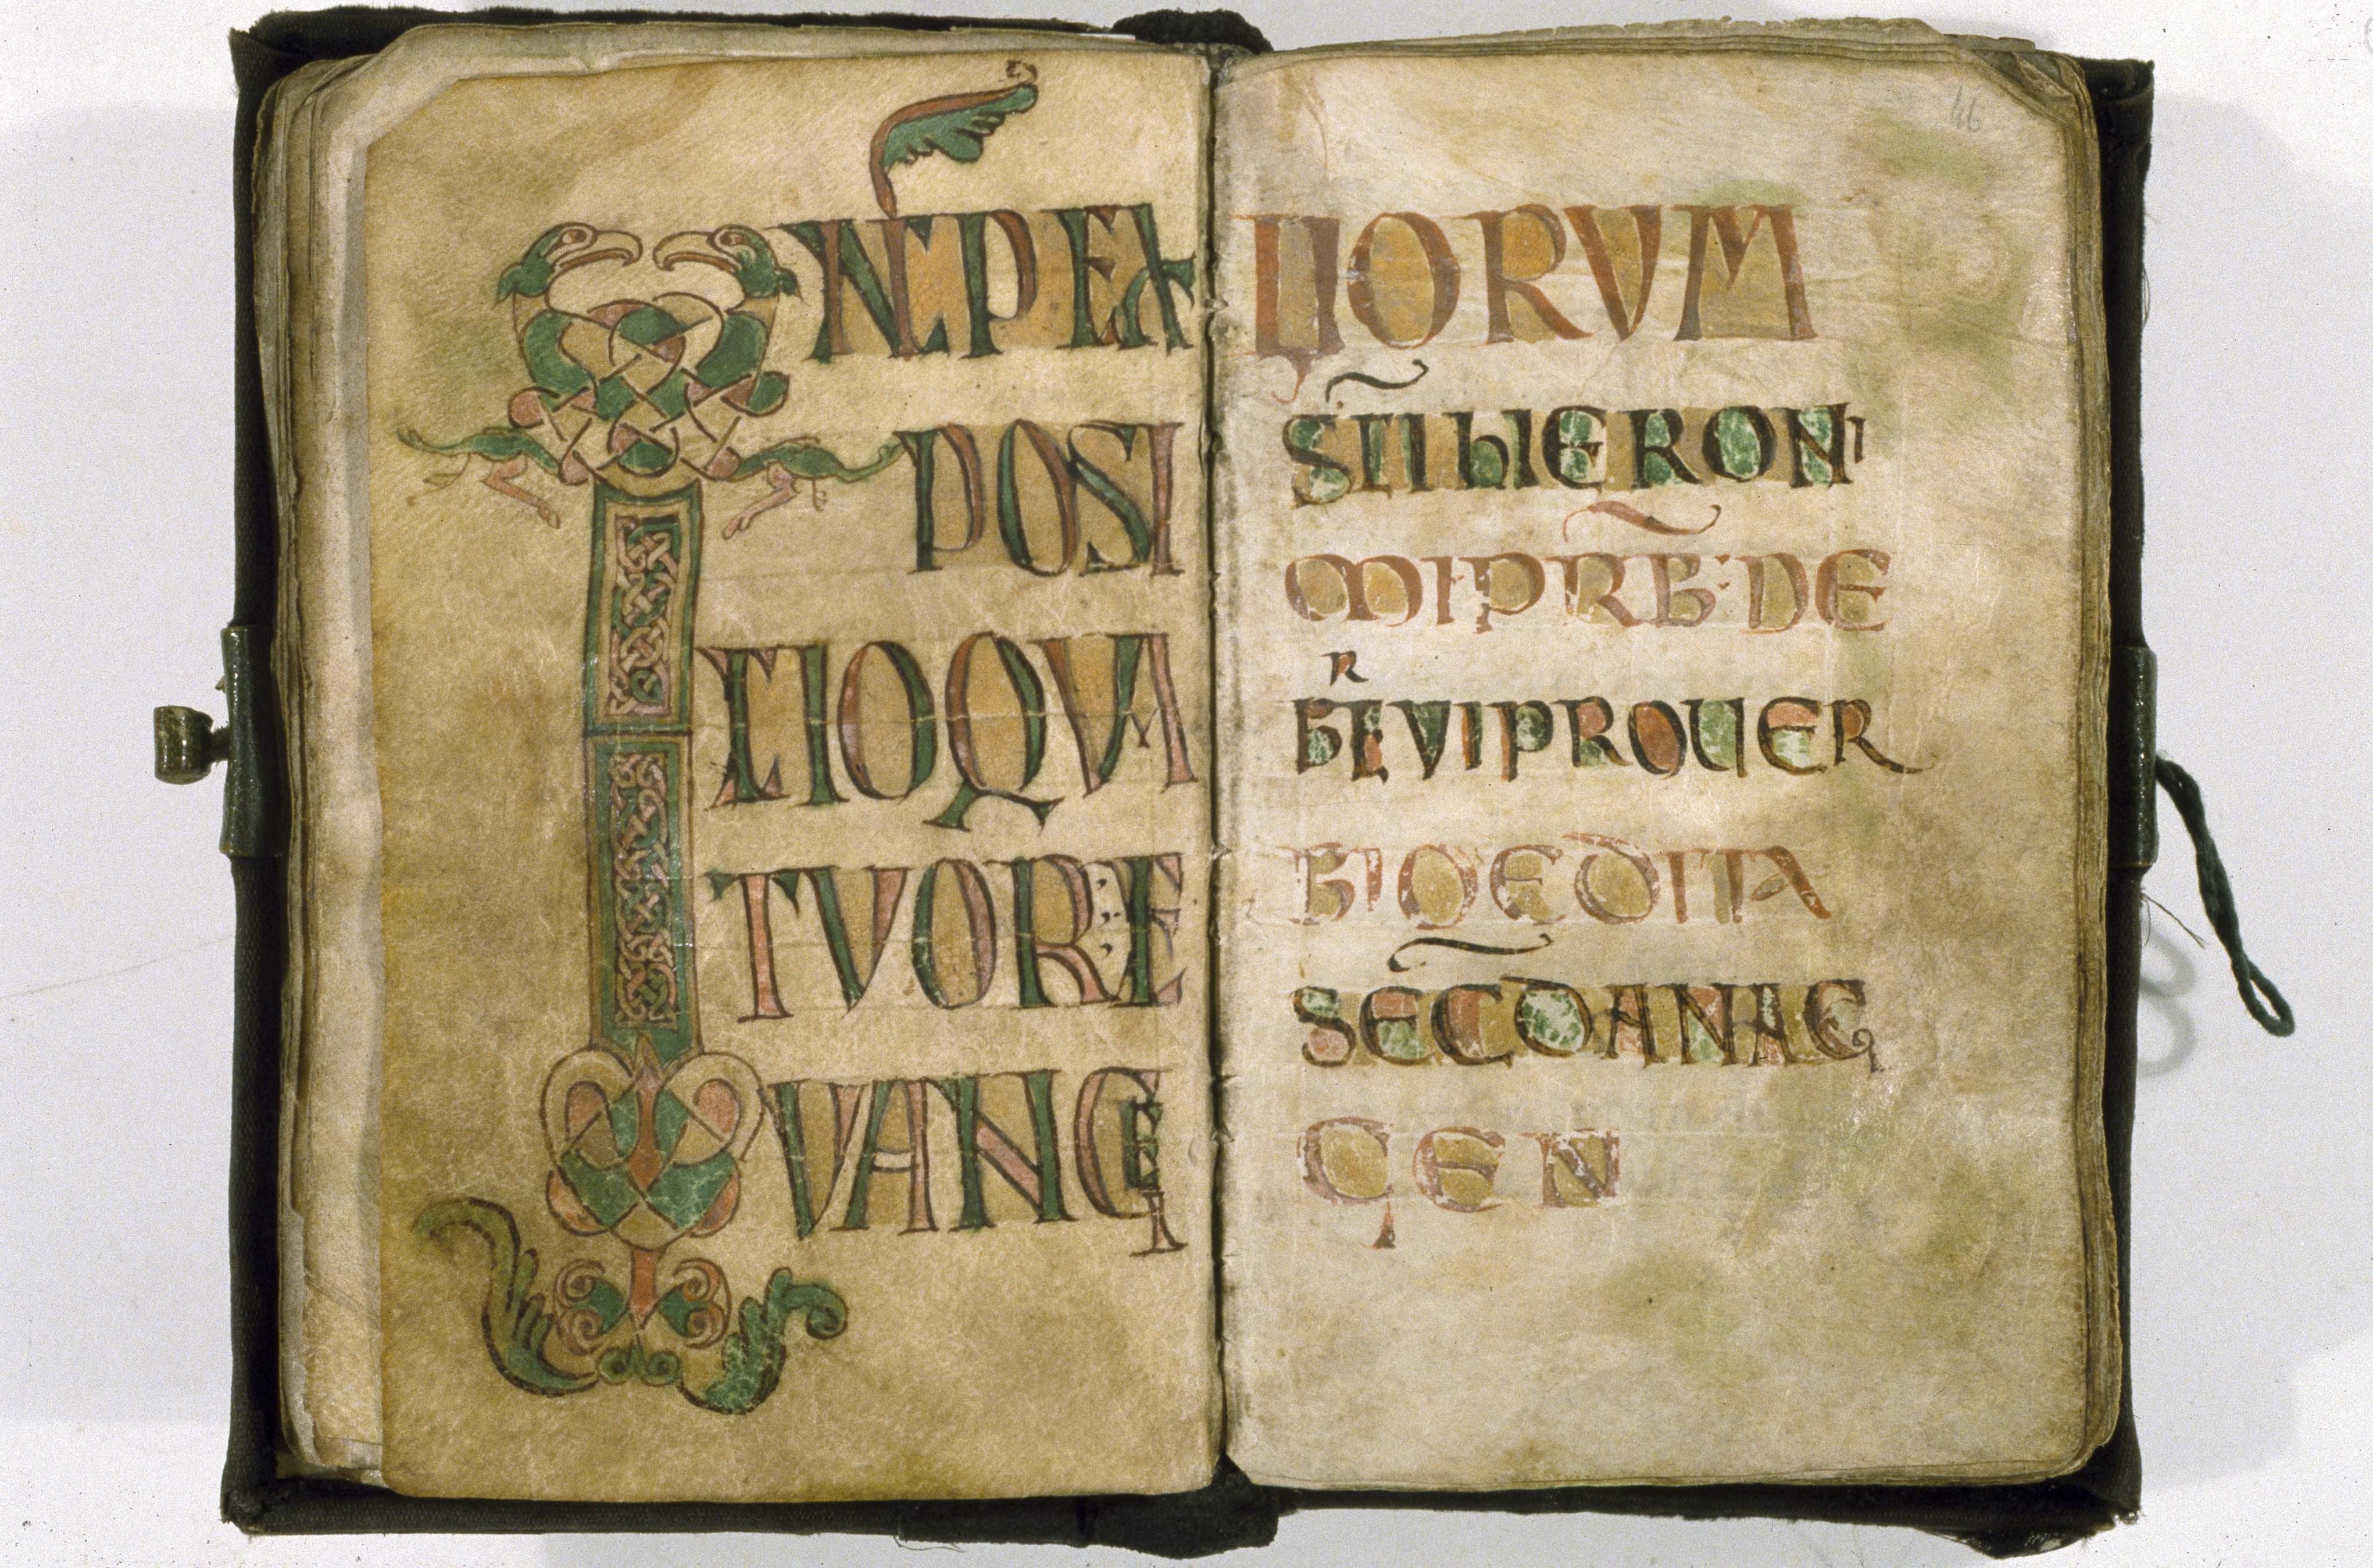 INCP EX
POSI
TIO QVA
TVOR E
VANGE
46
LIORVM
STI hIERONI
MI PRB: DE
R
BEVI PROUER
BIO EDITA
SECD ANAG
GEN